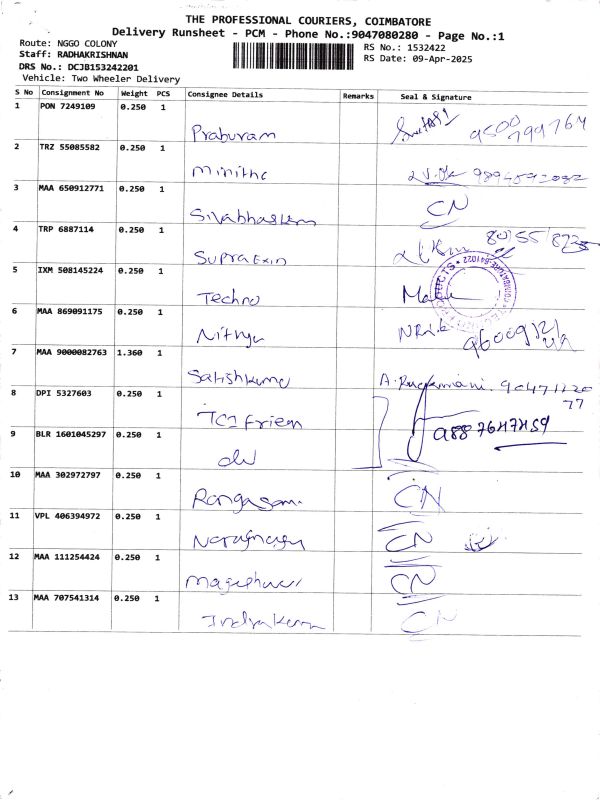 THE PROFESSIONAL COURIERS, COIMBATORE
Delivery Runsheet - PCM - Phone No.:9047080280 - Page No.:1
Route: NGGO COLONY
Staff: RADHAKRISHNAN
DRS No.: DCJB153242201
Vehicle: Two Wheeler Delivery
RS No.: 1532422
RS Date: 09-Apr-2025
S No Consignment No Weight PCS Consignee Details Remarks Seal & Signature
1 PON 7249109 0.250 1
Praburam
9500799764
2 TRZ 55085582 0.250 1
Minitha
3 MAA 650912771 0.250 1
Sivabhaskern CN
4 TRP 6887114 0.250 1
Supra Exin 80/55/8235
5 IXM 508145224 0.250 1
Techno
6 MAA 869091175 0.250 1
Nithya
7 MAA 9000082763 1.360 1
Satishkumar A. Rugkmani. 9047112077
8 DPI 5327603 0.250 1
TCI Frien
9887647459
9 BLR 1601045297 0.250 1
10 MAA 302972797 0.250 1
Rangasam CN
11 VPL 406394972 0.250 1
CN
12 MAA 111254424 0.250 1
CN
13 MAA 707541314 0.250 1
CN